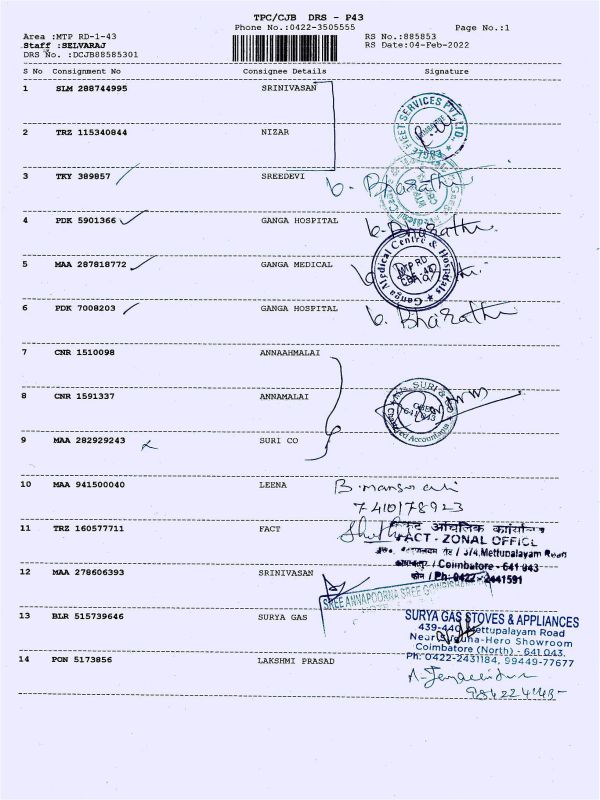 TPC/CJB DRS - P43
Phone No.:0422-3505555 Page No.:1
Area :MTP RD-1-43 RS No.:885853
Staff :SELVARAJ RS Date:04-Feb-2022
DRS No. :DCJB88585301
S No Consignment No Consignee Details Signature
1 SLM 288744995 SRINIVASAN
2 TRZ 115340844 NIZAR
3 TKY 389857 SREEDEVI b. Bharathi
4 PDK 5901366 GANGA HOSPITAL b. Bharathi
5 MAA 287818772 GANGA MEDICAL
Ganga Medical Centre & Hospitals
MTP RD
6 PDK 7008203 GANGA HOSPITAL b. Bharathi
7 CNR 1510098 ANNAAHMALAI
8 CNR 1591337 ANNAMALAI
SURI & CO
Chartered Accountants
9 MAA 282929243 SURI CO
10 MAA 941500040 LEENA B. mansoor ali
7410178923
11 TRZ 160577711 FACT
FACT - ZONAL OFFICE
/ 3/4, Mettupalayam Road
/ Coimbatore - 641 043
फोन / Ph: 0422-2441591
12 MAA 278606393 SRINIVASAN
SREE ANNAPOORNA SREE GOWRISHANKAR
13 BLR 515739646 SURYA GAS SURYA GAS STOVES & APPLIANCES
439-440, Mettupalayam Road
Near Suguna-Hero Showroom
Coimbatore (North) - 641 043.
Ph: 0422-2431184, 99449-77677
14 PON 5173856 LAKSHMI PRASAD